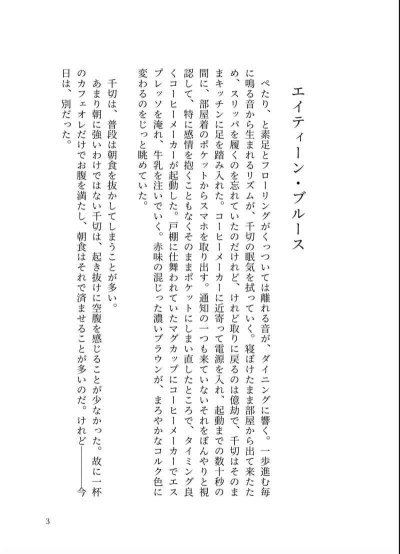 エイティーン・ブルース
ぺたり、と素足とフローリングがくっついては離れる音が、ダイニングに響く。一歩進む毎
に鳴る音から生まれるリズムが、千切の眠気を拭っていく。寝ぼけたまま部屋から出て来たた
め、スリッパを履くのを忘れていたのだけれど、けれど取りに戻るのは億劫で、千切はそのま
まキッチンに足を踏み入れた。コーヒーメーカーに近寄って電源を入れ、起動までの数十秒の
間に、部屋着のポケットからスマホを取り出す。通知の一つも来ていないそれをぼんやりと視
認して、特に感情を抱くこともなくそのままポケットにしまい直したところで、タイミング良
くコーヒーメーカーが起動した。戸棚に仕舞われていたマグカップにコーヒーメーカーでエス
プレッソを淹れ、牛乳を注いでいく。赤味の混じった濃いブラウンが、まろやかなコルク色に
変わるのをじっと眺めていた。
千切は、普段は朝食を抜かしてしまうことが多い。
あまり朝に強いわけではない千切は、起き抜けに空腹を感じることが少なかった。故に一杯
のカフェオレだけでお腹を満たし、朝食はそれで済ませることが多いのだ。けれど――今
日は、別だった。
3